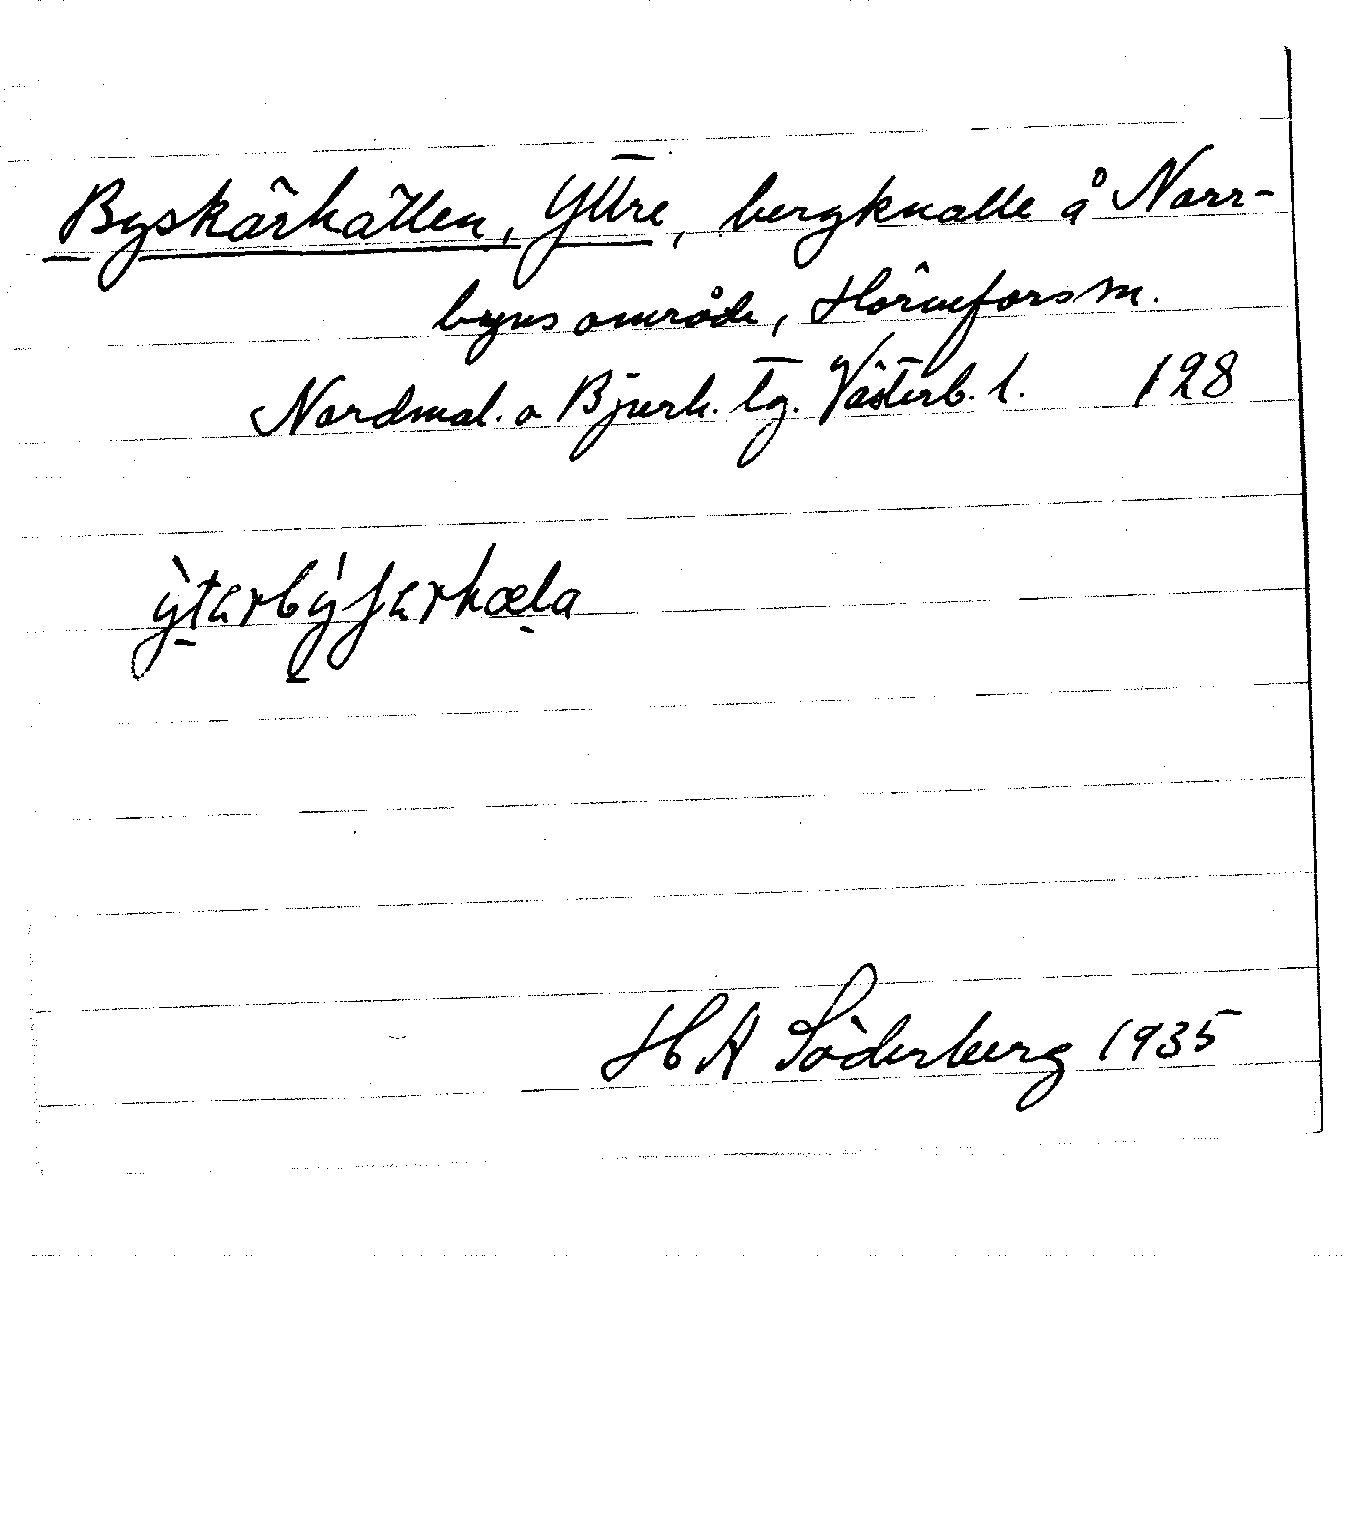 Byskärhällen, Yttre, bergknalle å Norr-
byns område, Hörnefors m.
Nordmal. o Bjurh. tg. Västerb. l. 128
H A Söderberg 1935